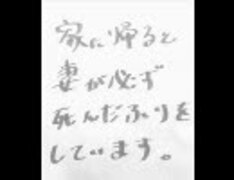 家に帰ると
妻が必ず
死んだふりを
しています。